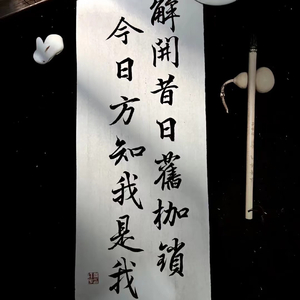 解開昔日舊枷鎖
今日方知我是我